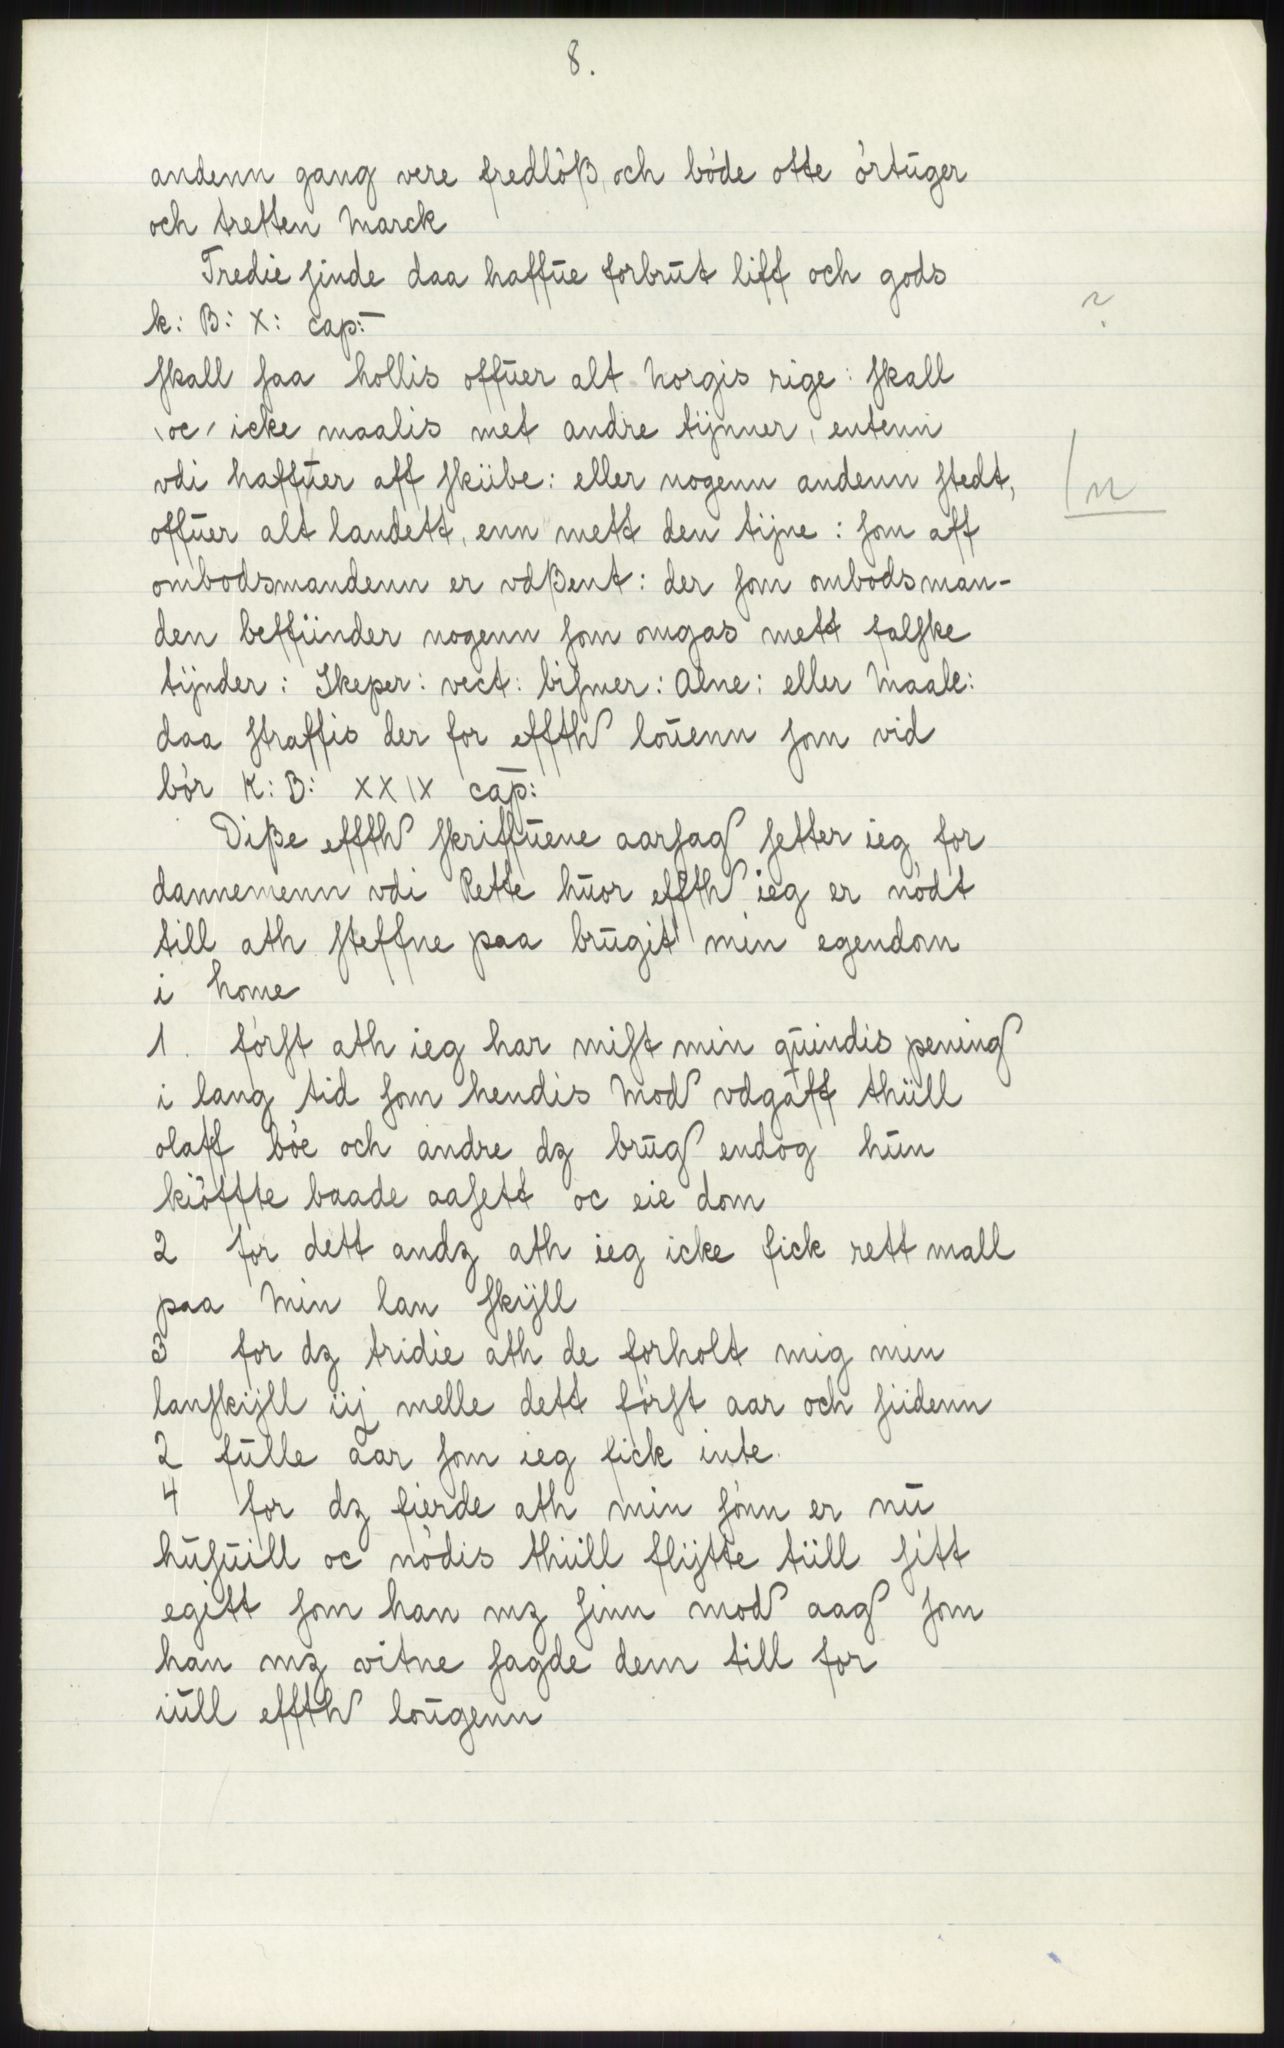 8.
andenn gang vere fredlöß, och böde otte örtuger
och tretten Marck
Tredie sinde daa haffue forbrut liff och gods
k: B: X: cap:
?
skall saa hollis offuer alt Norgis rige: skall
oc icke maalis met andre tijnner, entenn
vdi haffuer aff skiibe: eller nogenn andenn stedt,
n
offuer alt landett, enn mett den tijne: som aff
ombodsmandenn er vdßent: der som ombodsman-
den beffiinder nogenn som omgas mett falske
tijnder: Skeper: vect: bismer: Alne: eller Maale:
daa straffis der for effth louenn som vid
bör K: B: XXIX cap:
Diße effth skriffuene aarsag setter ieg for
dannemenn vdi Rette huor effth ieg er nödt
till ath steffne paa brugit min egendom
i home
1. först ath ieg har mist min quindis pening
i lang tid som hendis Mod vdgaff thiill
olaff böe och andre dz brug endog hun
kiöffte baade aasett oc eie dom
2 for dett andz ath ieg icke fick rett mall
paa Min lan skijll
3 for dz tridie ath de forholt mig min
lanskijll iij melle dett först aar och siidenn
2 fulle aar som ieg fick inte
4 for dz fierde ath min sönn er nu
husuill oc nödis thiill flijtte tiill sitt
egitt som han mz sinn mod aag som
han mz vitne sagde dem till for
iull effth lougenn